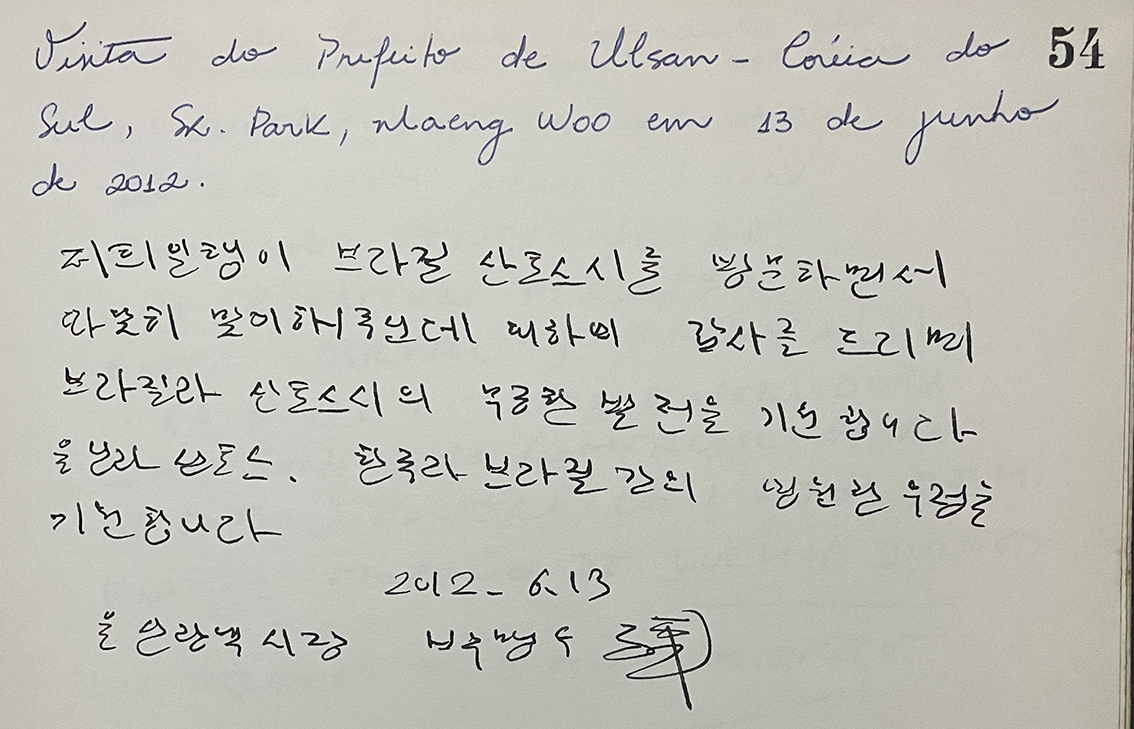 Visita do Prefeito de Ulsan - Coréia do 54
Sul, Sr. Park, Maeng Woo em 13 de junho
de 2012.
저희일행이 브라질 산토스시를 방문하면서
따뜻히 맞이해주신데 대하여 감사를 드리며
브라질과 산토스시의 무궁한 발전을 기원합니다
울산과 산토스, 한국과 브라질 간의 영원한 우정을
기원합니다
2012. 6. 13
울산광역시장 박맹우